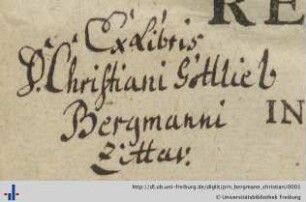 RE
Ex Libris
D. Christiani Gottlieb
Bergmanni
IN
Zittav.
http://dl.ub.uni-freiburg.de/diglit/prn_bergmann_christian/0001
© Universitätsbibliothek Freiburg